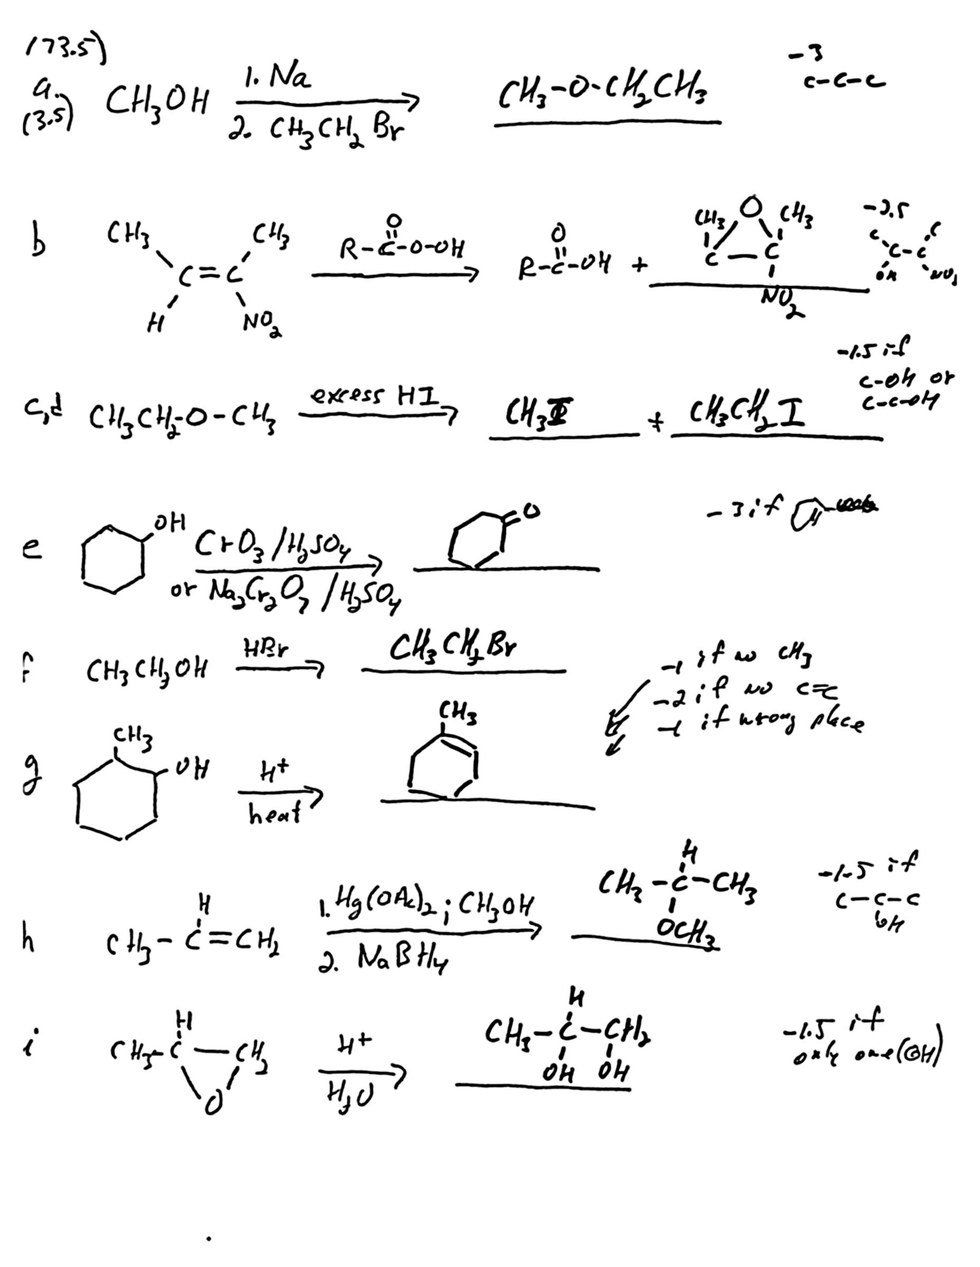 (73.5)
a. (3.5) CH3OH 1. Na 2. CH3CH2Br CH3-O-CH2CH3 -3 C-C-C
b CH3 CH3 C=C H NO2 R-C-O-OH O R-C-OH O + CH3 O CH3 C-C NO2 -2.5 C C C-C OH NO2
c,d CH3CH2-O-CH3 excess HI CH3I + CH3CH2I -1.5 if C-OH or C-C-OH
e OH CrO3/H2SO4 or Na2Cr2O7/H2SO4 O -3 if
f CH3CH2OH HBr CH3CH2Br
-1 if no CH3
-2 if no C=C
-1 if wrong place
g CH3 OH H+ heat CH3
h CH3-C=CH2 H 1. Hg(OAc)2; CH3OH 2. NaBH4 H CH3-C-CH3 OCH3 -1.5 if C-C-C OH
i H CH3-C-CH2 O H+ H2O H CH3-C-CH2 OH OH -1.5 if only one (OH)